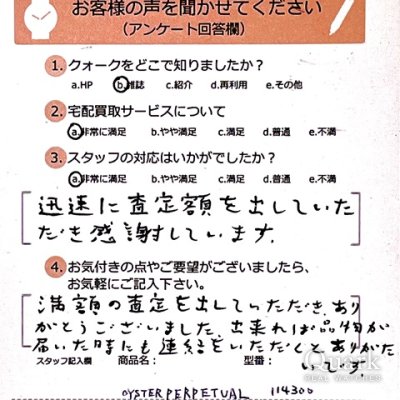 お客様の声を聞かせてください
(アンケート回答欄)
1. クォークをどこで知りましたか?
a.HP b.雑誌 c.紹介 d.再利用 e.その他
2. 宅配買取サービスについて
a.非常に満足 b.やや満足 c.満足 d.普通 e.不満
3. スタッフの対応はいかがでしたか?
a.非常に満足 b.やや満足 c.満足 d.普通 e.不満
迅速に査定額を出していた
だき感謝しています.
4. お気付きの点やご要望がございましたら、
お気軽にご記入下さい。
満額の査定を出していただき、あり
がとうございました、出来れば品物が
届いた時にも連絡をいただくとありがた
いです.
スタッフ記入欄 商品名: 型番:
OYSTER PERPETUAL 114300
Quark
REAL WATCHES